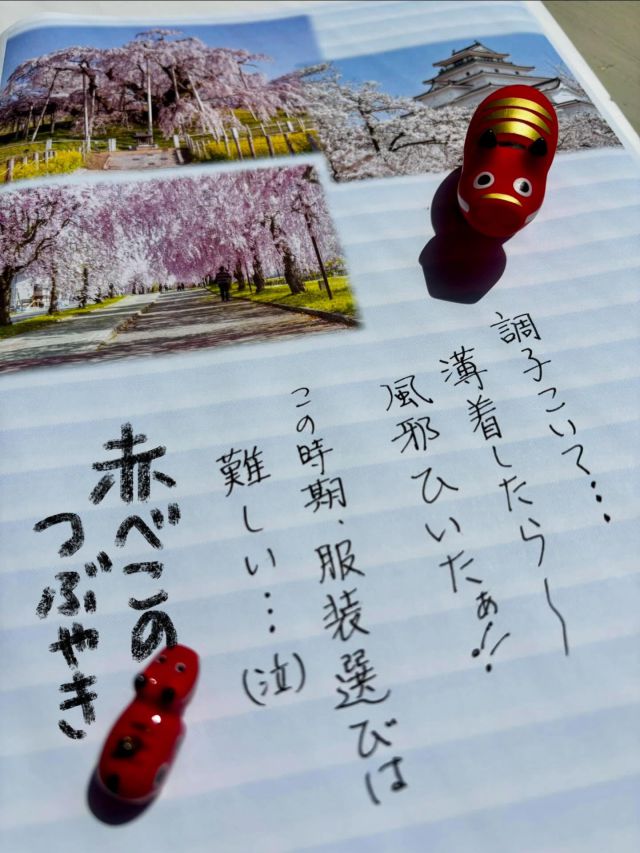 調子こいて…
薄着したら〜
風邪ひいたぁ!!
この時期、服装選びは
難しい…(泣)
赤べこの
つぶやき